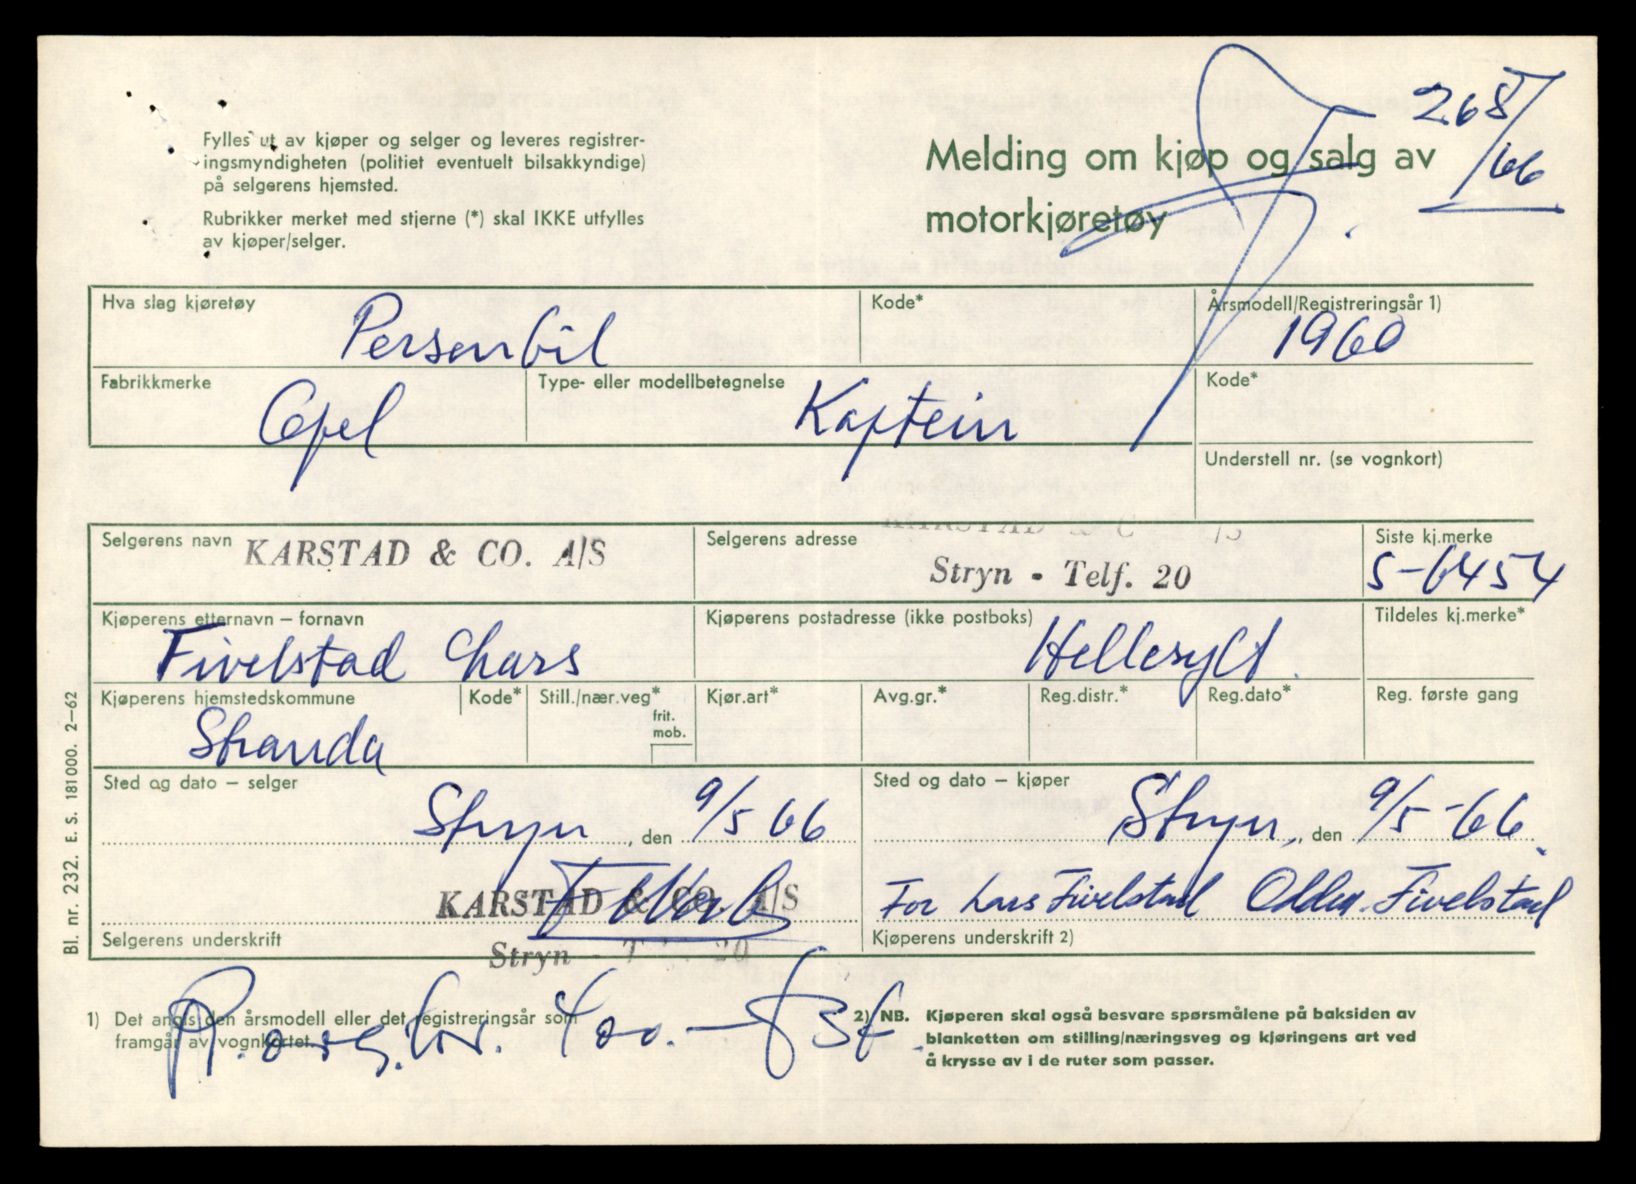 Fylles ut av kjøper og selger og leveres registrer-
ingsmyndigheten (politiet eventuelt bilsakkyndige)
på selgerens hjemsted.
Rubrikker merket med stjerne (*) skal IKKE utfylles
av kjøper/selger.
Melding om kjøp og salg av
motorkjøretøy
268
/66
Hva slag kjøretøy
Personbil
Kode*
Årsmodell/Registreringsår 1)
1960
Fabrikkmerke
Opel
Type- eller modellbetegnelse
Kaptein
Kode*
Understell nr. (se vognkort)
Selgerens navn
KARSTAD & CO. A/S
Selgerens adresse
Stryn - Telf. 20
Siste kj.merke
S-6454
Kjøperens etternavn – fornavn
Fivelstad Lars
Kjøperens postadresse (ikke postboks)
Hellesylt.
Tildeles kj.merke*
Kjøperens hjemstedskommune
Stranda
Kode*
Still./nær.veg*
frit.
mob.
Kjør.art*
Avg.gr.*
Reg.distr.*
Reg.dato*
Reg. første gang
Sted og dato – selger
Stryn, den 9/5 66
Sted og dato – kjøper
Stryn, den 9/5-66.
KARSTAD & CO. A/S
Selgerens underskrift
Stryn - T 20
For Lars Fivelstad Fivelstad
Kjøperens underskrift 2)
1) Det angis den årsmodell eller det registreringsår som
framgår av vognkortet.
2) NB. Kjøperen skal også besvare spørsmålene på baksiden av
blanketten om stilling/næringsveg og kjøringens art ved
å krysse av i de ruter som passer.
Bl. nr. 232. E. S. 181000. 2–62